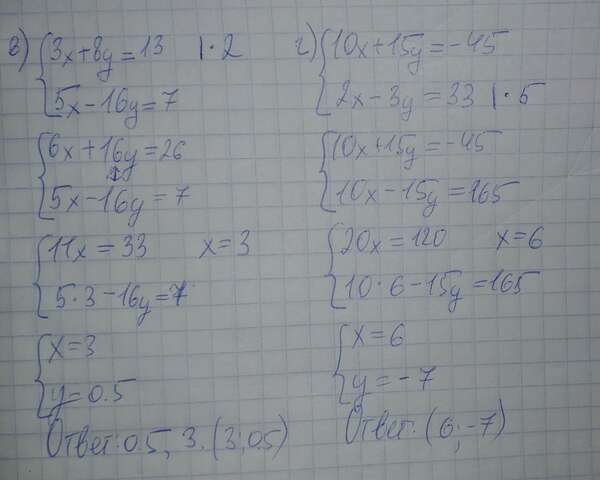 в) 3x+8y=13 |·2
5x-16y=7
6x+16y=26
5x-16y=7
11x=33 x=3
5·3-16y=7
x=3
y=0.5
Ответ: 0.5, 3. (3; 0.5)
г) 10x+15y=-45
2x-3y=33 |·5
10x+15y=-45
10x-15y=165
20x=120 x=6
10·6-15y=165
x=6
y=-7
Ответ: (6; -7)